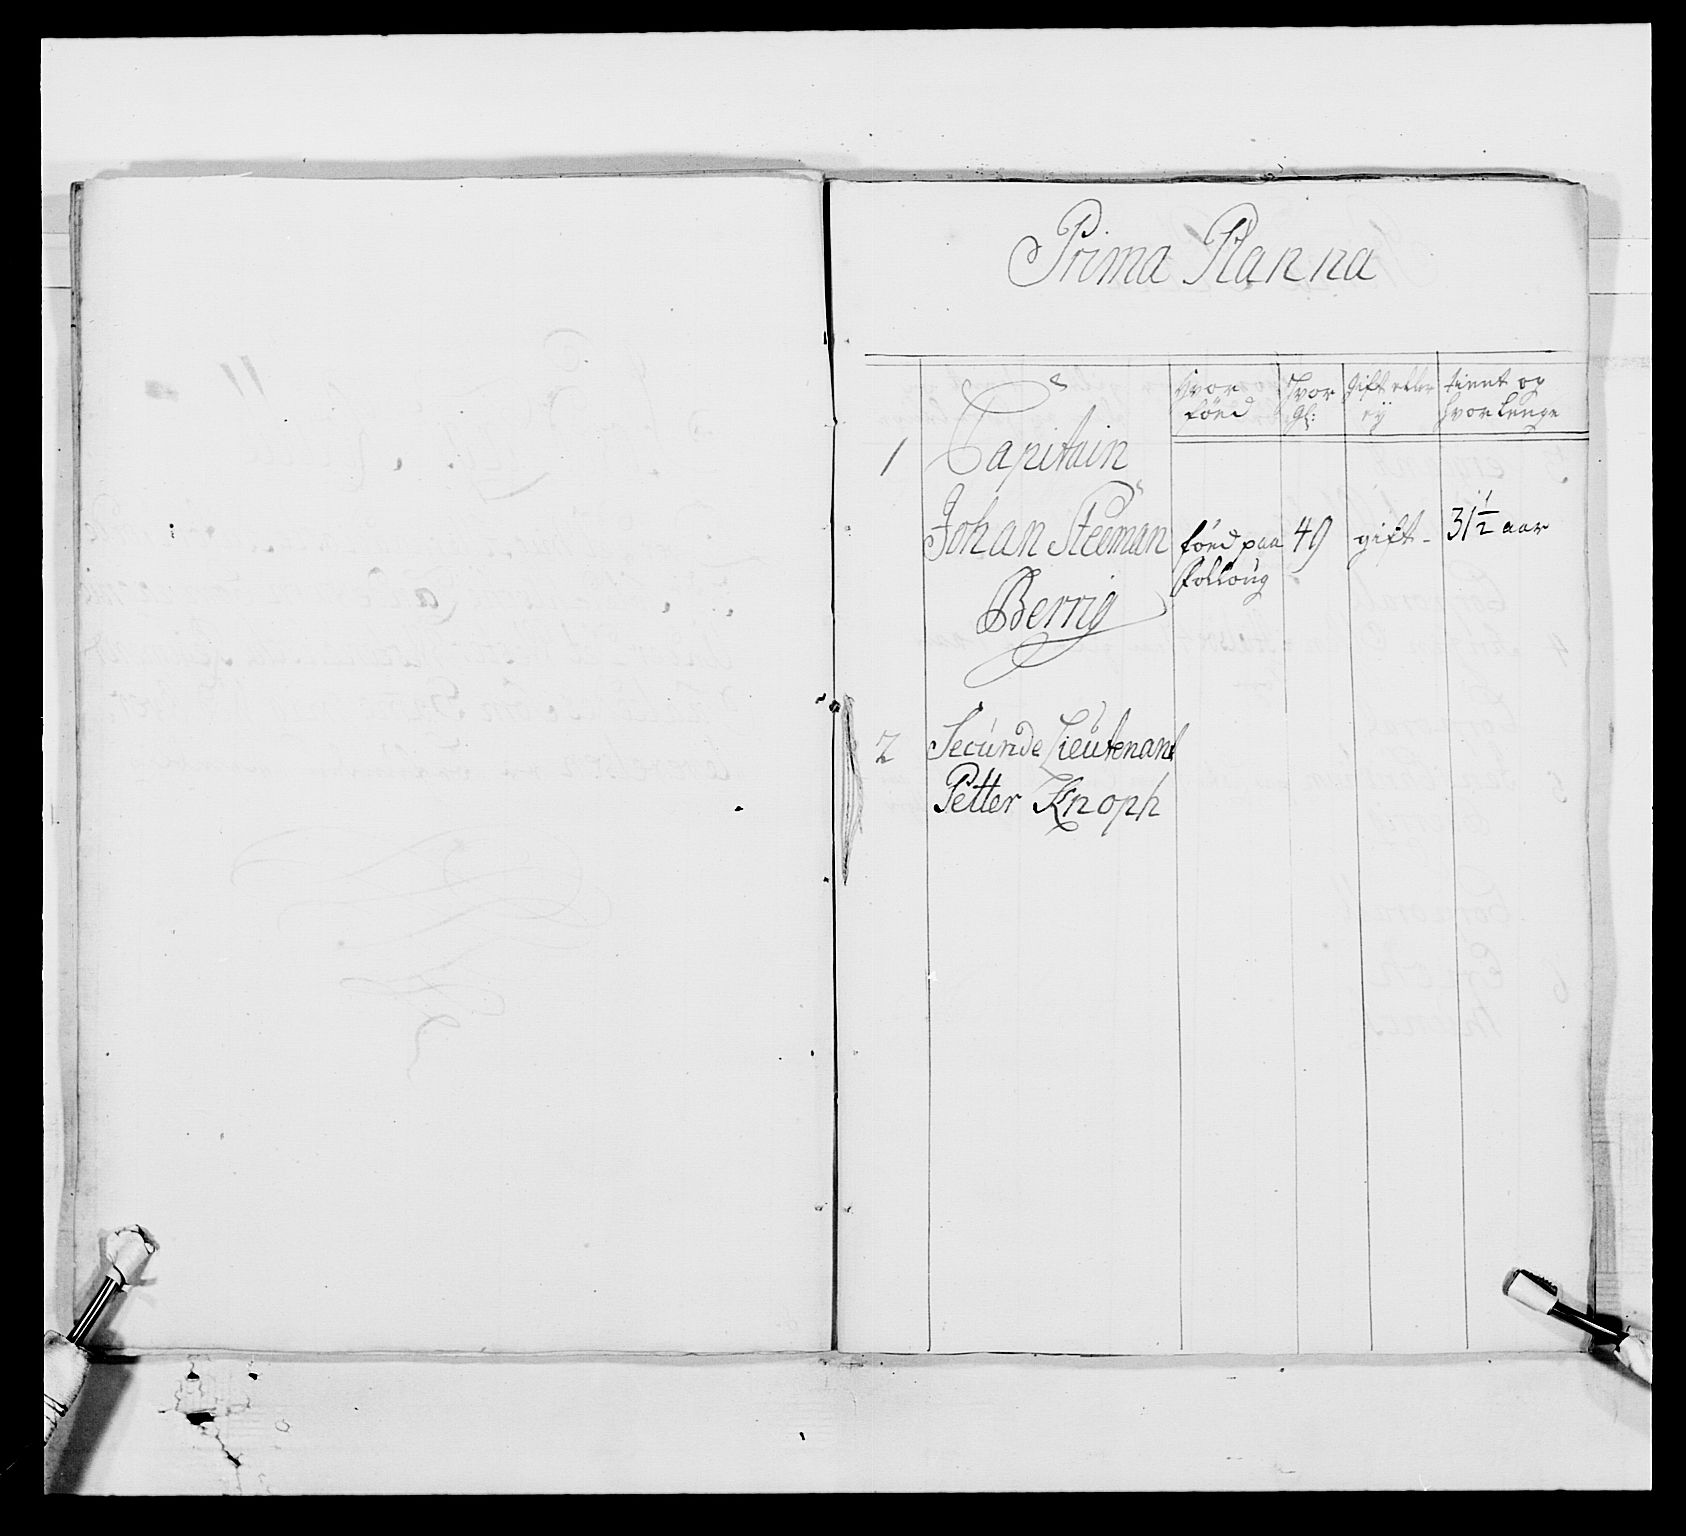 Prima Planna
Hvor föed
Hvor gl:
gift eller ey
tient og hvor lenge
1 Capitain
Johan Steeman Berrig
föed paa Folloug
49
gift
31 1/2 aar
2 Secunde Lieutenant
Petter Knoph